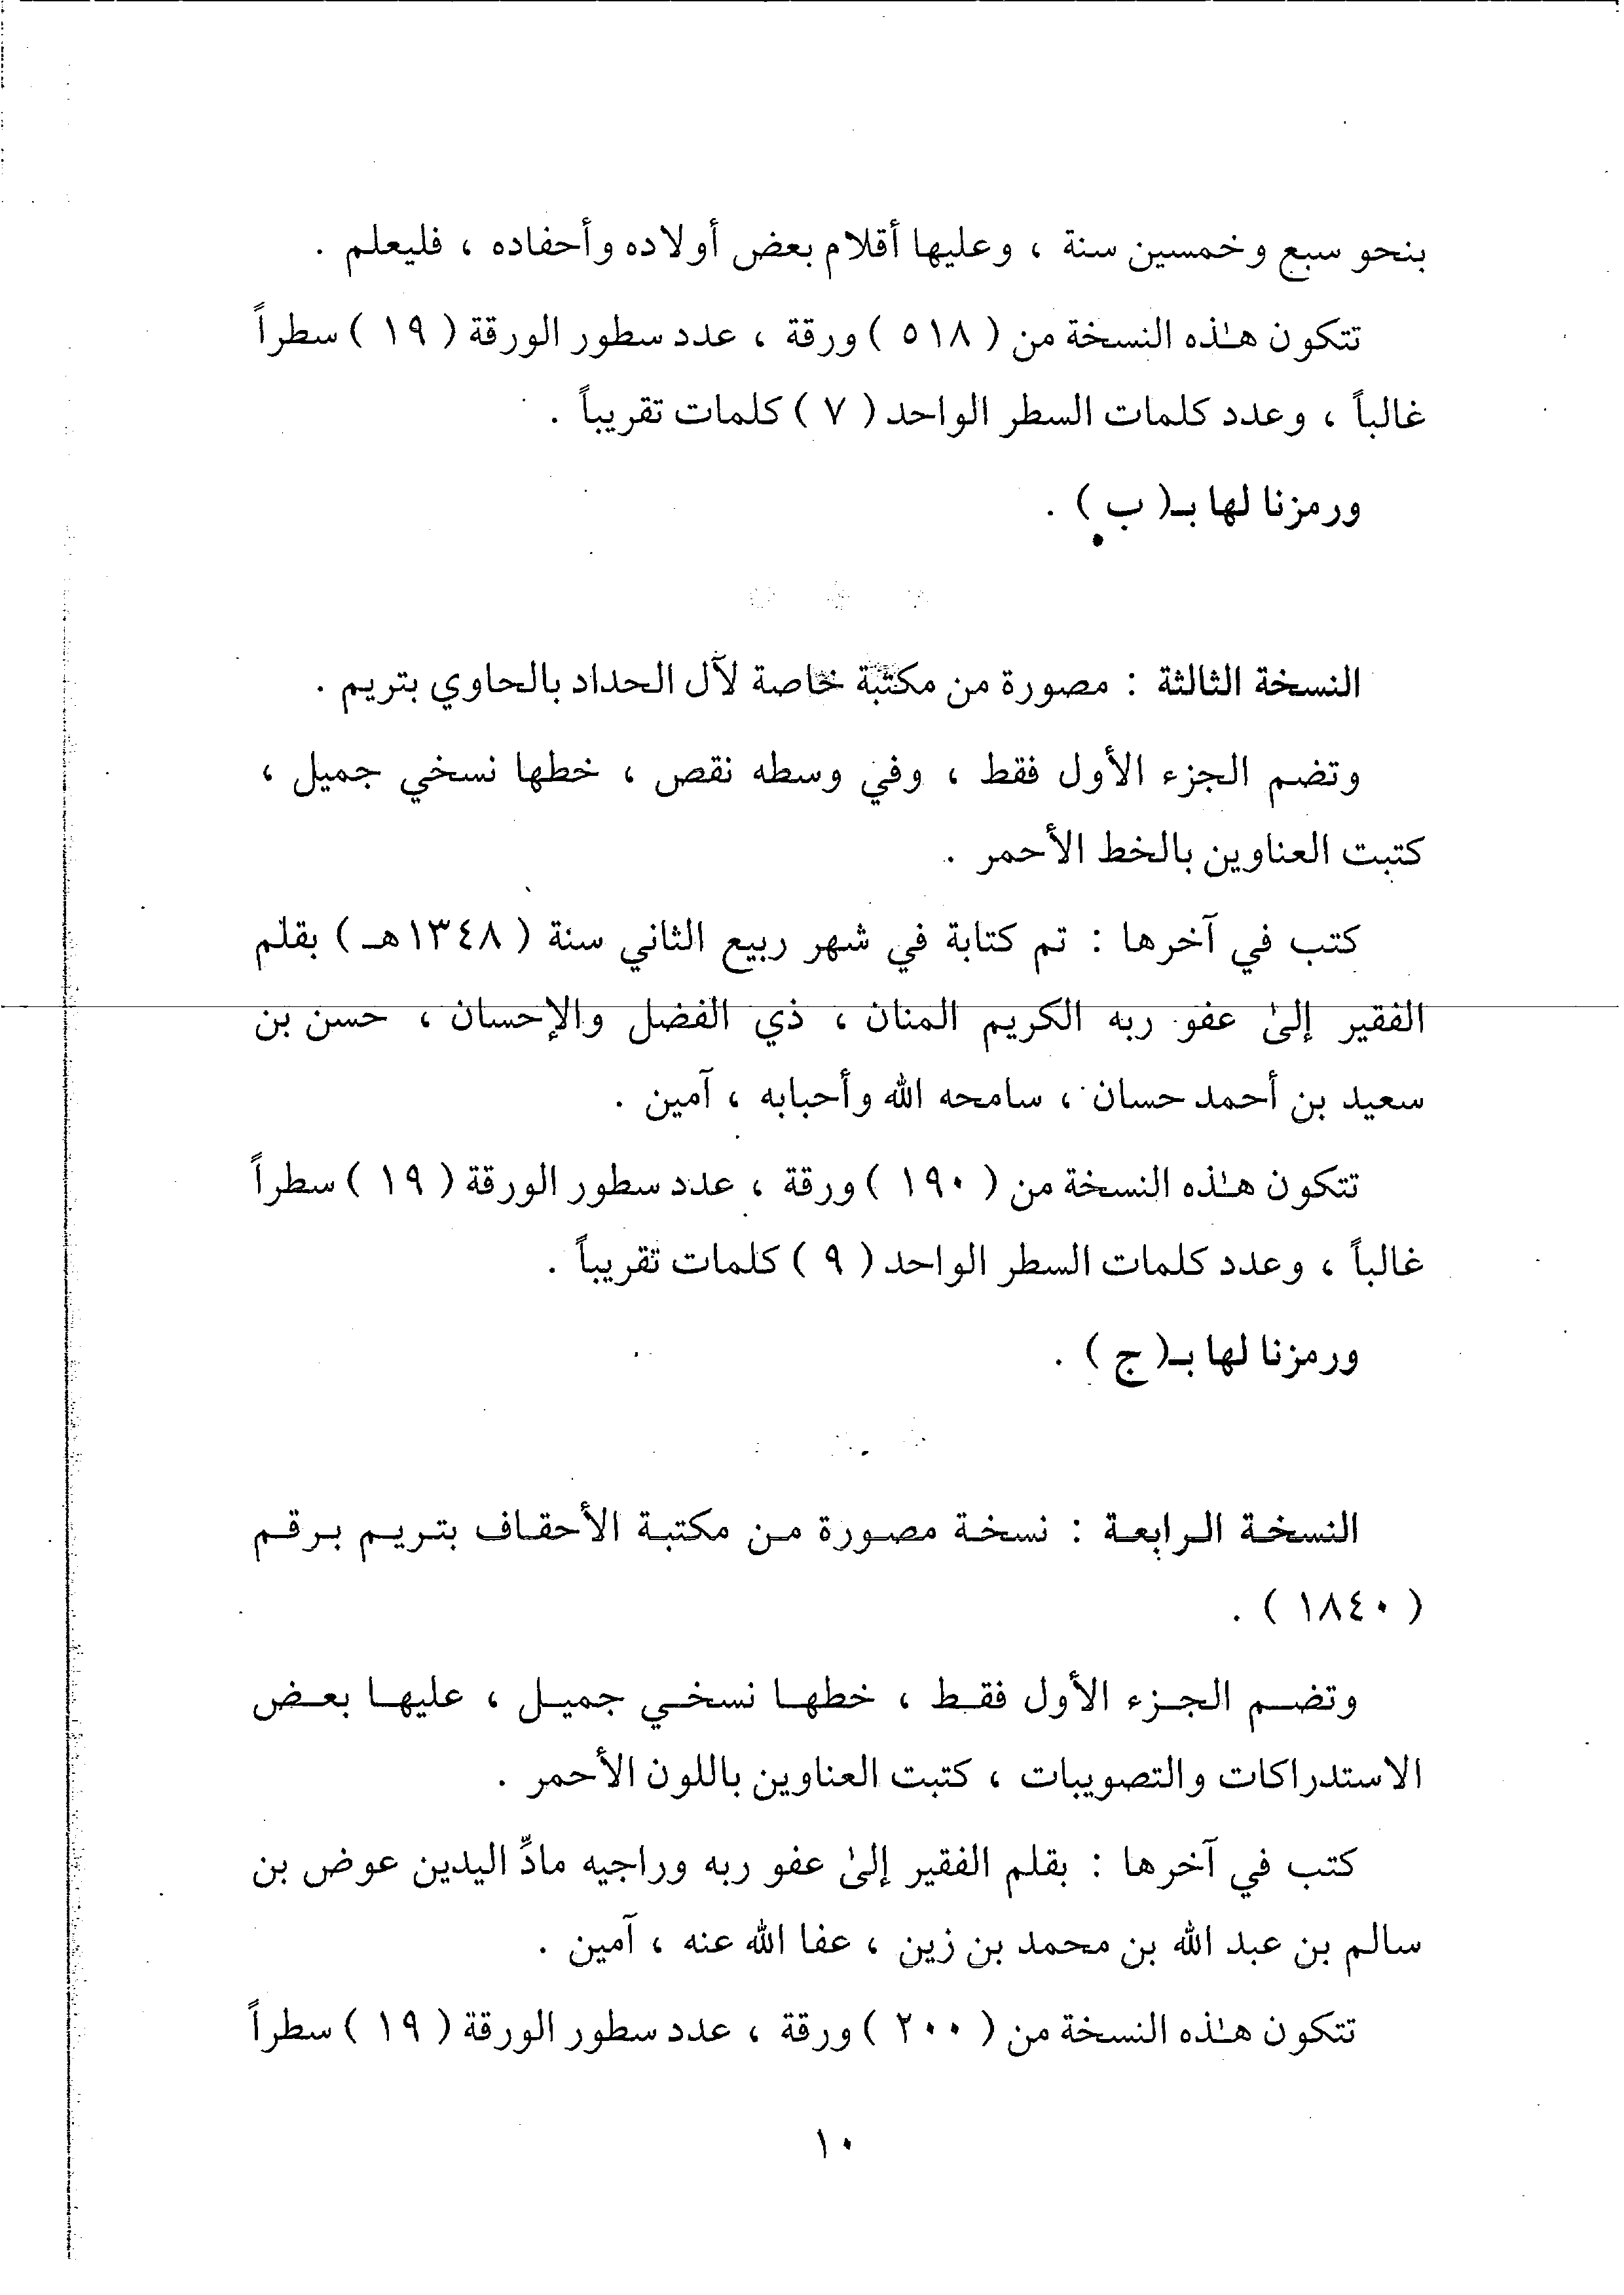 بنحو سبع وخمسين سنة ، وعليها أقلام بعض أولاده وأحفاده ، فليعلم .
تتكون هـٰذه النسخة من ( ٥١٨ ) ورقة ، عدد سطور الورقة ( ١٩ ) سطراً
غالباً ، وعدد كلمات السطر الواحد ( ٧ ) كلمات تقريباً .
ورمزنا لها بـ( ب ) .
النسخة الثالثة : مصورة من مكتبة خاصة لآل الحداد بالحاوي بتريم .
وتضم الجزء الأول فقط ، وفي وسطه نقص ، خطها نسخي جميل ،
كتبت العناوين بالخط الأحمر .
كتب في آخرها : تم كتابة في شهر ربيع الثاني سنة ( ١٣٤٨هـ ) بقلم
الفقير إلىٰ عفو ربه الكريم المنان ، ذي الفضل والإحسان ، حسن بن
سعيد بن أحمد حسان ، سامحه الله وأحبابه ، آمين .
تتكون هـٰذه النسخة من ( ١٩٠ ) ورقة ، عدد سطور الورقة ( ١٩ ) سطراً
غالباً ، وعدد كلمات السطر الواحد ( ٩ ) كلمات تقريباً .
ورمزنا لها بـ( ج ) .
النسخـة الـرابعـة : نسخـة مصـورة مـن مكتبـة الأحقـاف بتـريـم بـرقـم
( ١٨٤٠ ) .
وتضـم الجـزء الأول فقـط ، خطهـا نسخـي جميـل ، عليهـا بعـض
الاستدراكات والتصويبات ، كتبت العناوين باللون الأحمر .
كتب في آخرها : بقلم الفقير إلىٰ عفو ربه وراجيه مادِّ اليدين عوض بن
سالم بن عبد الله بن محمد بن زين ، عفا الله عنه ، آمين .
تتكون هـٰذه النسخة من ( ٢٠٠ ) ورقة ، عدد سطور الورقة ( ١٩ ) سطراً
١٠